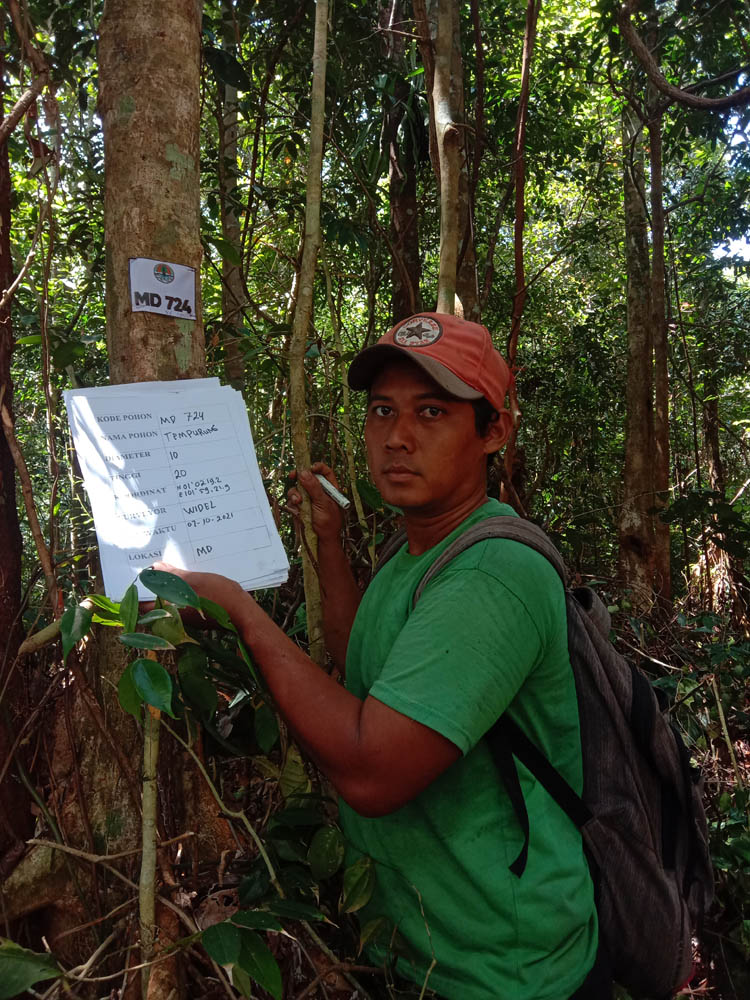 MD 724
KODE POHON MD 724
NAMA POHON TEMPURUNG
DIAMETER 10
TINGGI 20
KOORDINAT N 01°02'19.2
E 101°59'21.9
SURVEYOR WIDEL
WAKTU 07-10-2021
LOKASI MD